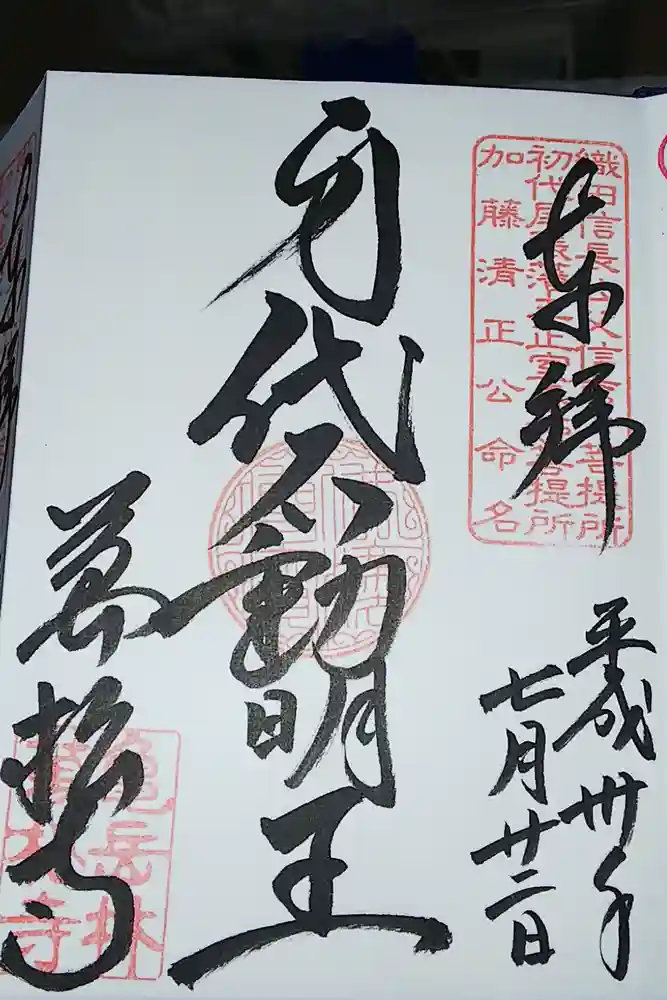 奉拝
織田信長公父信秀公菩提所
初代尾張藩主正室春姫菩提所
加藤清正公命名
平成卅年
七月廿二日
身代不動明王
萬松寺
龜岳林
萬松寺